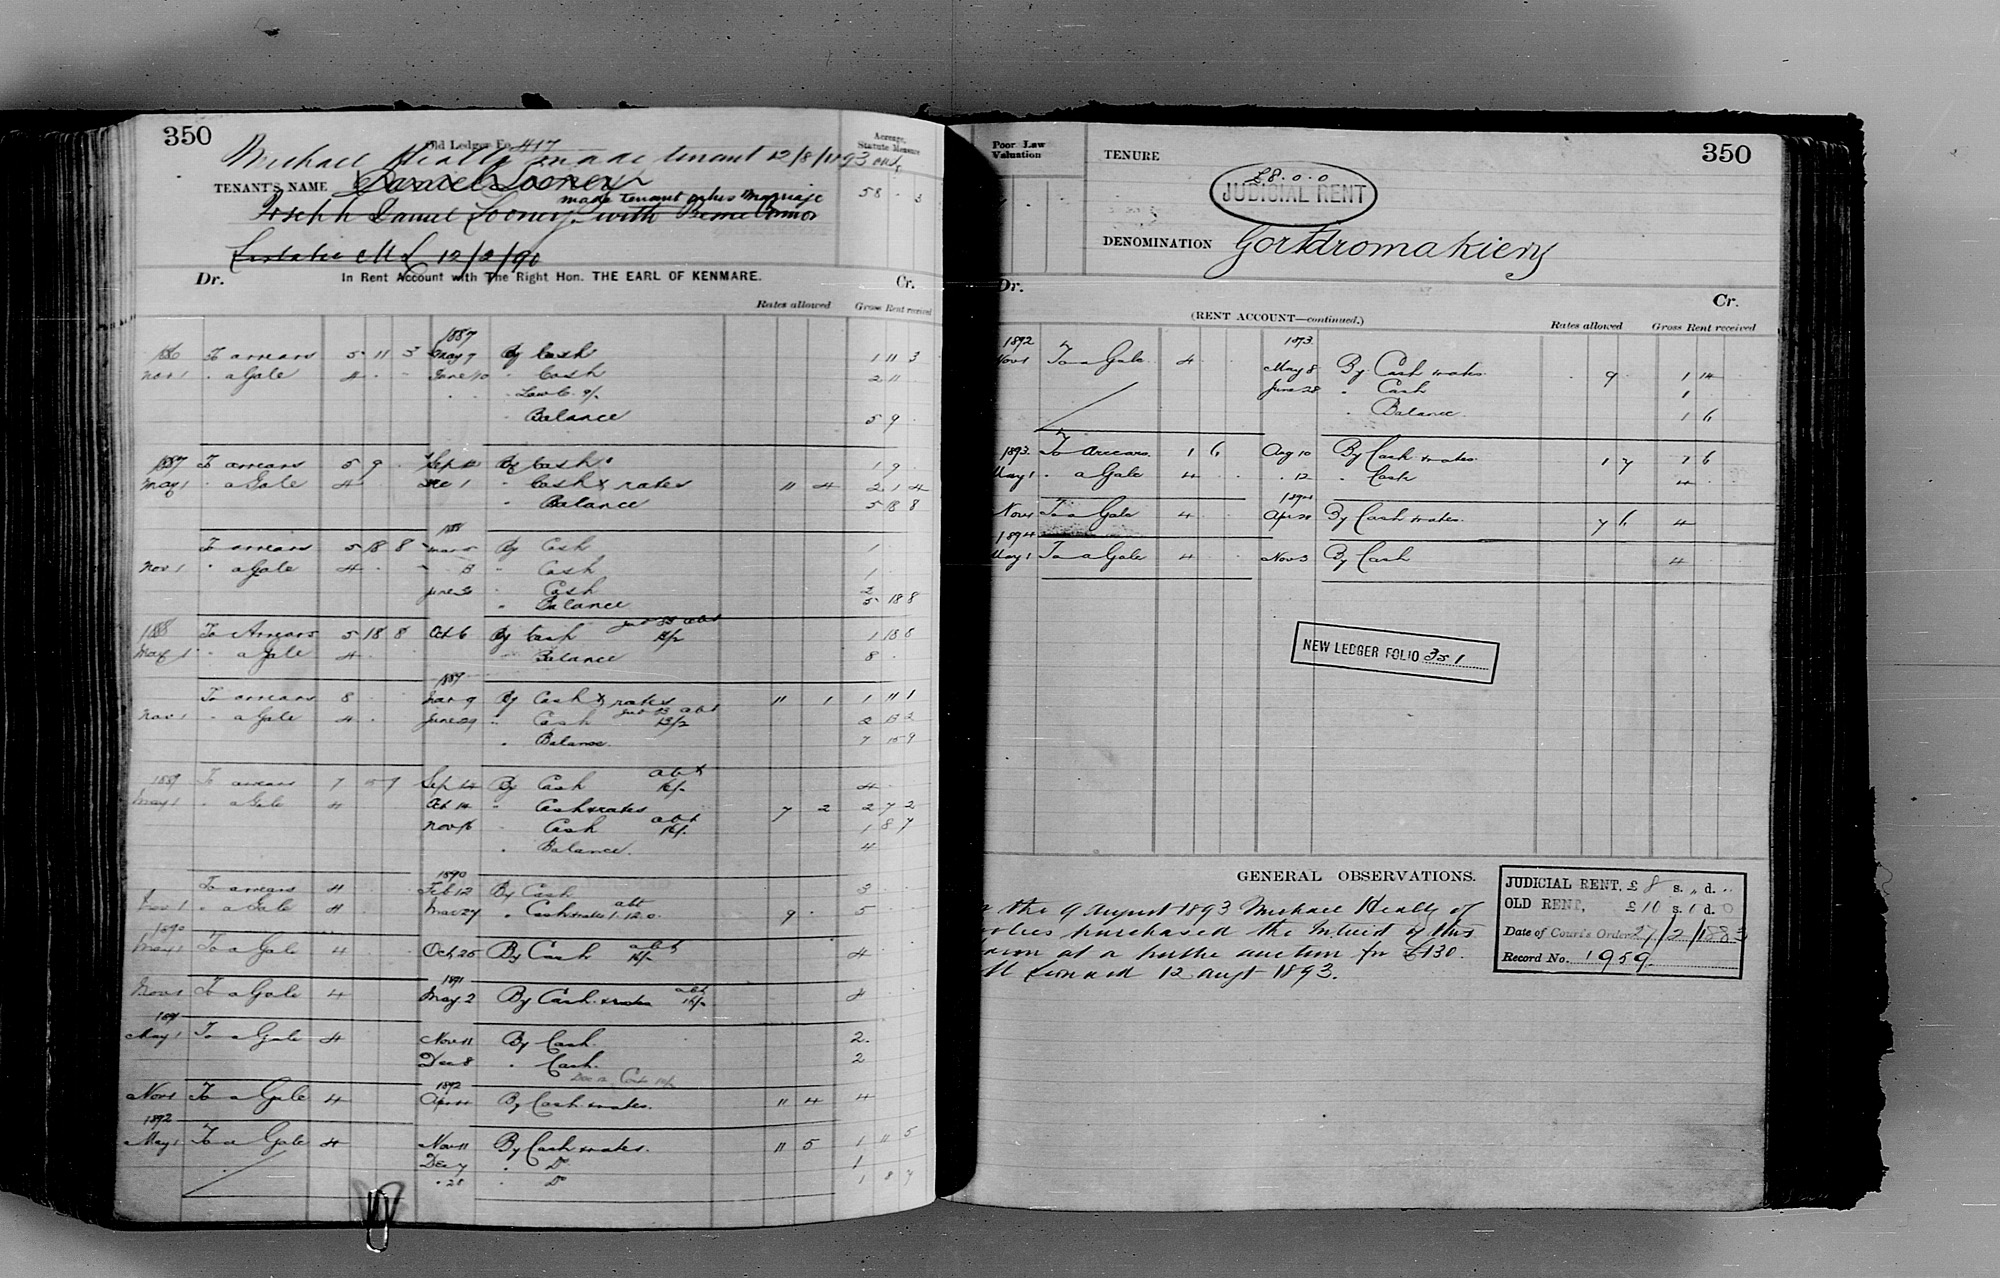 350
Old Ledger Fo. 417
Michael Healy made tenant 12/8/1893
Acreage, Statute Measure
TENANT'S NAME Daniel Looney
58 3
made tenant on his marriage
Joseph Daniel Looney with
12/2/90
Dr. In Rent Account with The Right Hon. THE EARL OF KENMARE. Cr.
Rates allowed Gross Rent received
1887
To arrears 5 11 3 May 7 By Cash 1 11 3
Nov 1 " a Gale 4 - - June 10 " Cash 2 11
Balance 5 9
1887 To arrears 5 9 Sep By Cash 1 9
May 1 " a Gale 4 Dec 1 " Cash & rates 11 4 2 1 4
" Balance 5 18 8
1888
To arrears 5 18 8 Mar 5 By Cash 1
Nov 1 " a Gale 4 " 13 " Cash 1
June 30 " Cash 2
" Balance 5 18 8
1888 To Arrears 5 18 8 Oct 6 By Cash 1 18 8
May 1 " a Gale 4 Balance 8
1889
To arrears 8 Mar 9 By Cash & rates 11 1 1 11 1
Nov 1 " a Gale 4 June 29 " Cash 13/2 2 13 2
" Balance 7 15 9
1889 To arrears 7 15 9 Sep 14 By Cash abt 16/- 4
May 1 " a Gale 4 Oct 14 " Cash & rates 7 2 2 7 2
Nov 16 " Cash abt 16/- 1 8 7
" Balance. 4
1890
To arrears 4 Feb 12 By Cash 3
Nov 1 " a Gale 4 Mar 27 " Cash & rates abt 1.12.0 9 5
1890
May 1 To a Gale 4 Oct 25 By Cash abt 16/- 4
1891
Nov 1 To a Gale 4 May 2 By Cash & rates abt 16/- 4
1891
May 1 To a Gale 4 Nov 11 By Cash 2
Dec 8 " Cash. 2
1892
Nov 1 To a Gale 4 Apr By Cash & rates. 11 4 4
1892
May 1 To a Gale 4 Nov 11 By Cash & rates. 11 5 1 11 5
Dec 7 " Do 1
" 28 " Do 1 8 7
Poor Law Valuation
TENURE
350
£8.0.0
JUDICIAL RENT
DENOMINATION Gortdromakiery
Dr. Cr.
(RENT ACCOUNT—continued.)
Rates allowed Gross Rent received
1892 1893
Nov 1 To a Gale 4 May 8 By Cash & rates 9 1 14
June 28 " Cash 1
" Balance 1 6
1893 To Arrears 1 6 Aug 10 By Cash & rates 1 7 1 6
May 1 " a Gale 4 " 12 " Cash 4
1894
Nov 1 To a Gale 4 Apr By Cash & rates 7 6 4
1894
May 1 To a Gale 4 Nov 3 By Cash 4
NEW LEDGER FOLIO 351
GENERAL OBSERVATIONS.
the 9 August 1893 Michael Healy of
purchased the Interest of this
at a public auction for £130.
Leonard 12 augt 1893.
JUDICIAL RENT, £ 8 s. " d. "
OLD RENT, £ 10 s. 1 d. 0
Date of Court's Order 27/2/1883
Record No. 1959